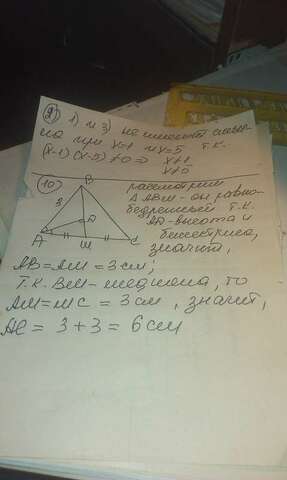 9) 1) и 3) не имеют смыс-
ла при x=1 и x=5 т.к.
(x-1)(x-5)≠0 => x≠1
x≠5
10) B
рассмотрим
3
△ ABM - он равно-
бедренный т.к.
O
AO-высота и
биссектриса,
A M C
значит,
AB = AM = 3 см;
Т.к. BM - медиана, то
AM = MC = 3 см, значит,
AC = 3 + 3 = 6 см